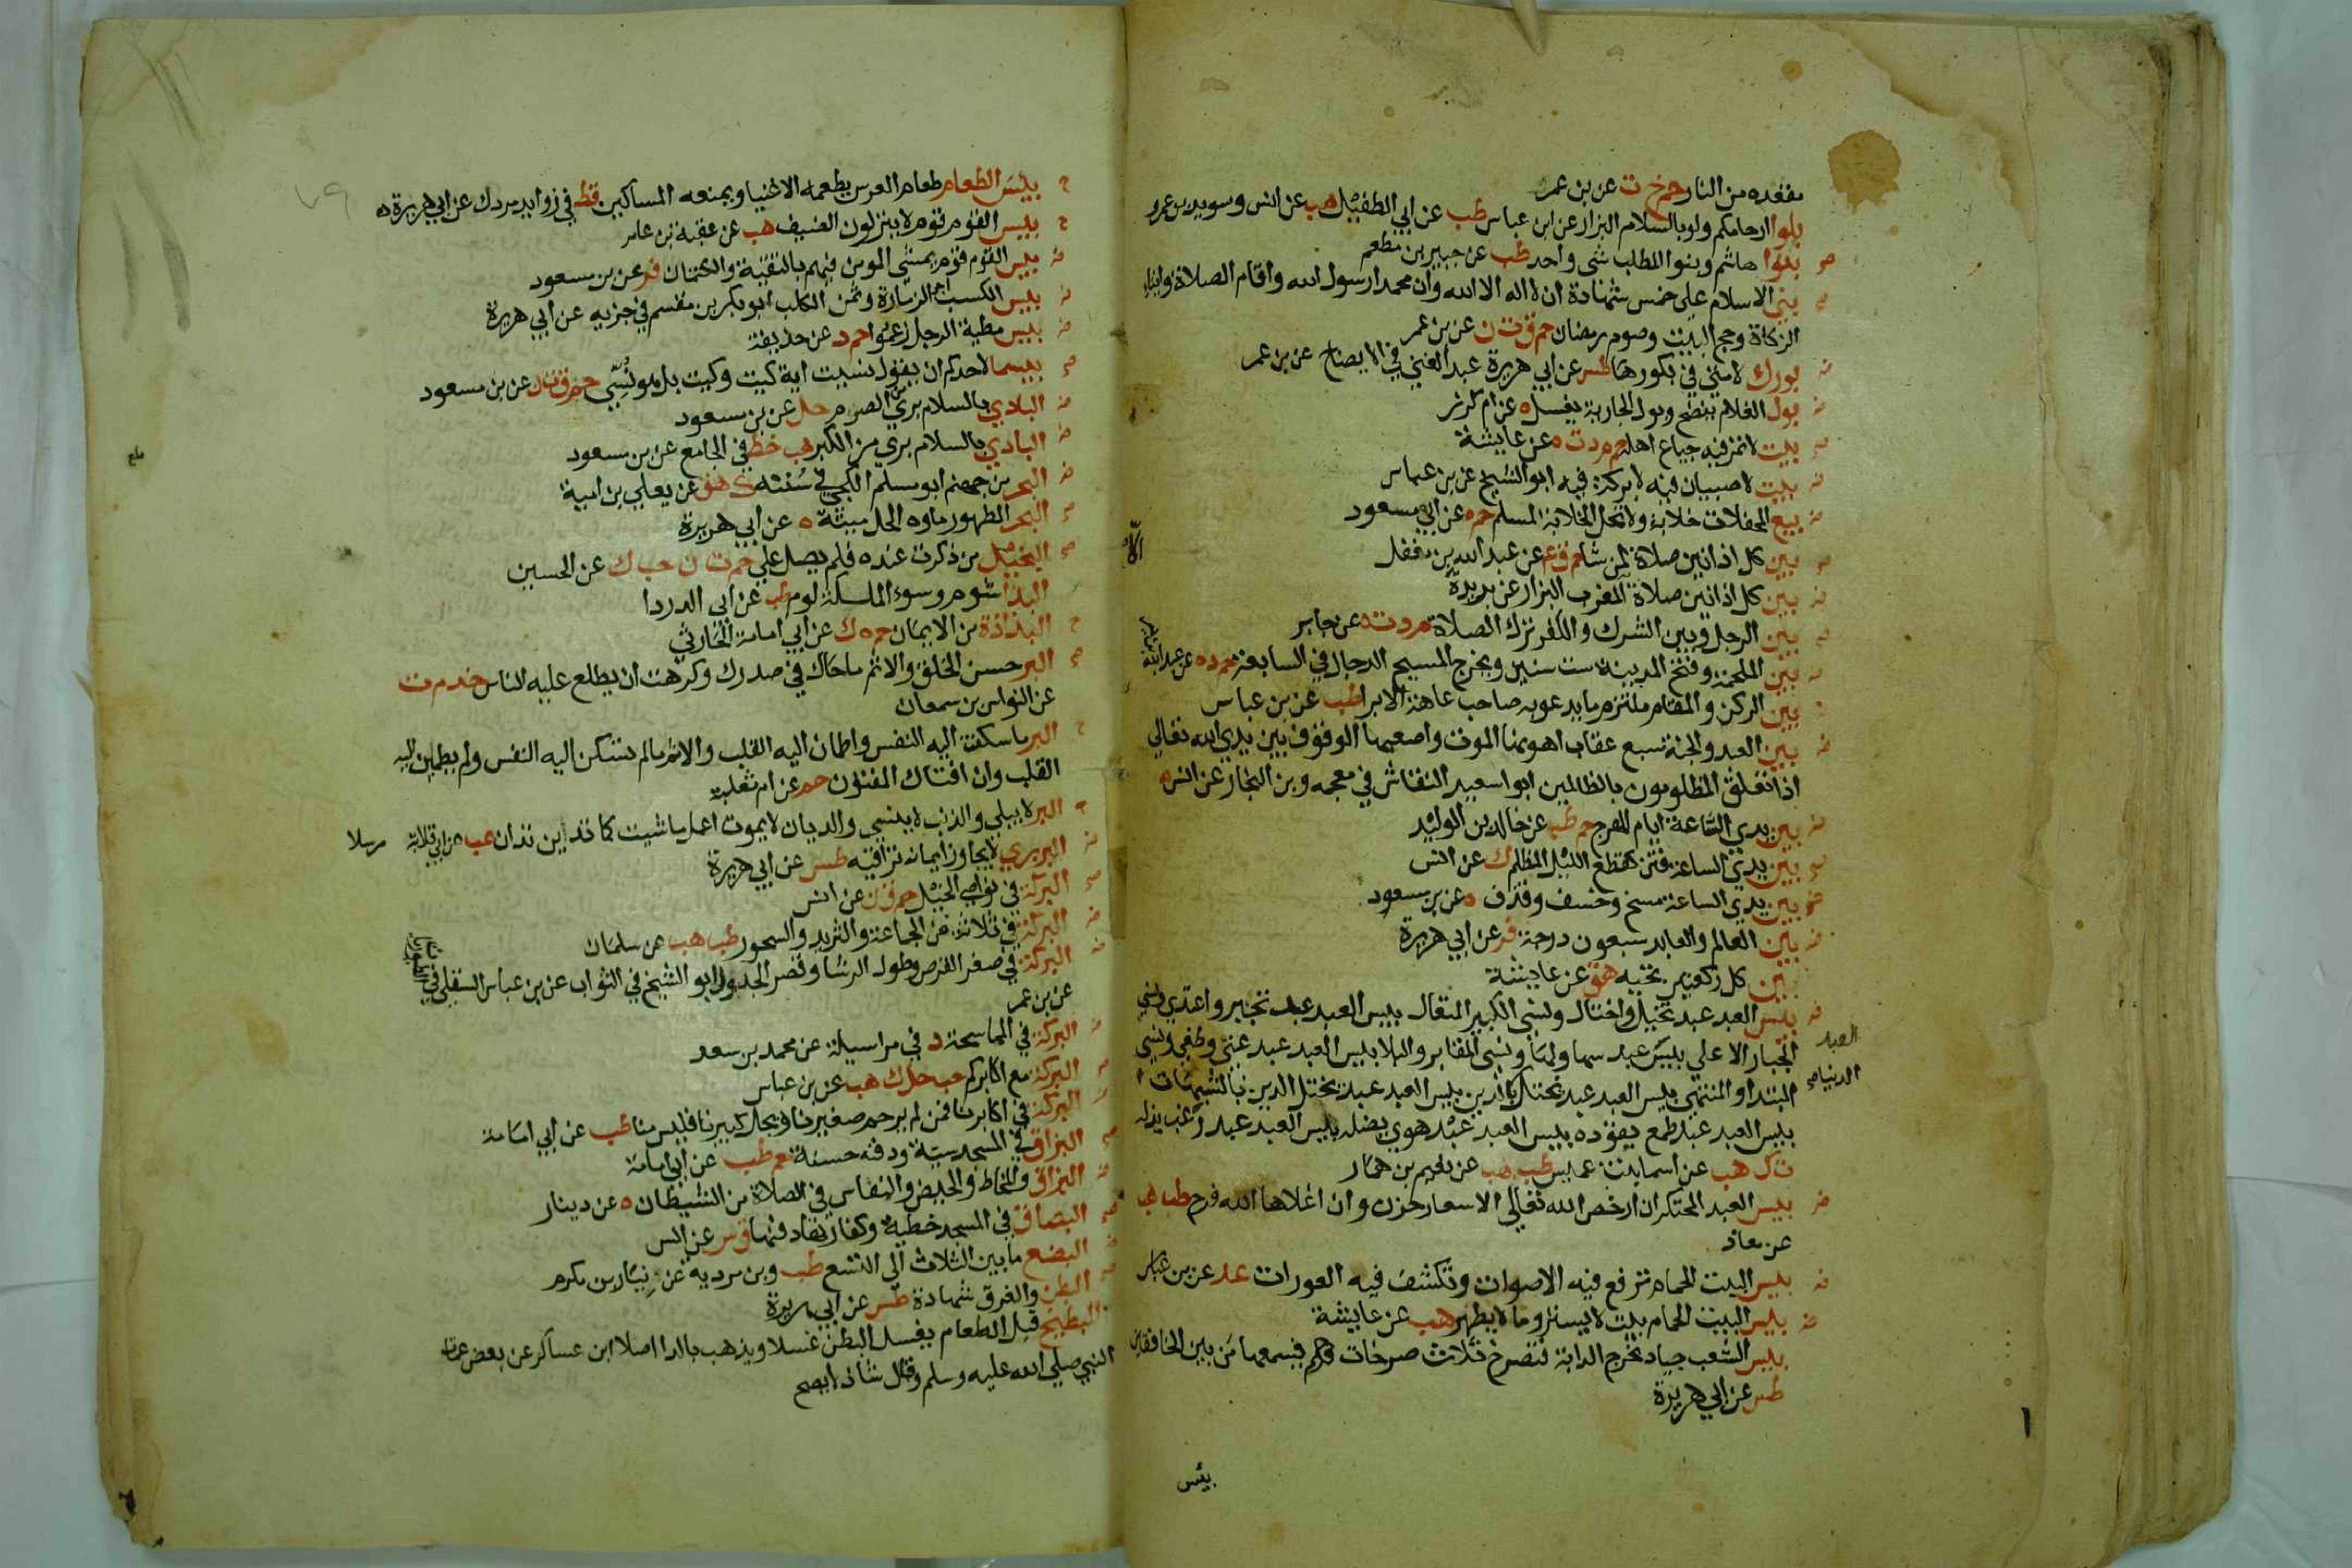 مقعده من النار حم خ ت عن بن عمر
بلوا ارحامكم ولو بالسلام البزار عن ابن عباس طب عن ابي الطفيل هب عن انس وسويد بن عمر
بنوا هاشم وبنوا المطلب شي واحد طب عن جبير بن مطعم
بني الاسلام علي خمس شهادة ان لا اله الا الله وان محمدا رسول الله واقام الصلاة وايتاء
الزكاة وحج البيت وصوم رمضان حم ق ت ن عن بن عمر
بورك لامتي في بكورها طس عن ابي هريرة عبد الغني في الايضاح عن بن عمر
بول الغلام ينضح وبول الجارية يغسل ه عن ام كرز
بيت لا تمر فيه جياع اهله حم م د ت ه عن عايشة
بيت لا صبيان فيه لا بركة فيه ابو الشيخ عن بن عباس
بيع المحفلات خلابة ولا تحل الخلابة لمسلم حم ه عن ابي مسعود
بين كل اذانين صلاة لمن شا حم ق ع عن عبد الله بن مغفل
بين كل اذانين صلاة المغرب البزار عن بريدة
بين الرجل وبين الشرك والكفر ترك الصلاة م د ت ه عن جابر
بين الملحمة وفتح المدينة ست سنين ويخرج المسيح الدجال في السابعة حم د ه عن عبد الله
بين الركن والمقام ملتزم ما يدعو به صاحب عاهة الا برا طب عن بن عباس
بين العبد والجنة سبع عقاب اهونها الموت واصعبها الوقوف بين يدي الله تعالي
اذا تعلق المظلومون بالظالمين ابو سعيد النقاش في معجمه وبن النجار عن انس
بين يدي الساعة ايام الهرج حم طب عن خالد بن الوليد
بين يدي الساعة فتن كقطع الليل المظلم ك عن انس
بين يدي الساعة مسخ وخسف وقذف ه عن بن مسعود
بين العالم والعابد سبعون درجة فر عن ابي هريرة
بين كل ركعتين تحية هق عن عايشة
بيس العبد عبد تخيل واختال ونسي الكبير المتعال بيس العبد عبد تجبر واعتدي ونسي
الجبار الاعلي بيس عبد سها ولها ونسي المقابر والبلا بيس العبد عبد عتي وطغي ونسي
العبد
المبتدا والمنتهي بيس العبد عبد يختل بالدين بيس العبد عبد يختل الدين بالشبهات
الدنيا
بيس العبد عبد طمع يقوده بيس العبد عبد هوي يضله بيس العبد عبد رغب يذله
ت ك هب عن اسما بنت عميس طب هب عن نعيم بن همار
بيس العبد المحتكر ان ارخص الله تعالي الاسعار حزن وان اغلاها الله فرح طب هب
عن معاذ
بيس البيت الحمام ترفع فيه الاصوات وتكشف فيه العورات عد عن بن عباس
بيس البيت الحمام بيت لا يستر وما لا يطهر هب عن عايشة
بيس الشعب جياد تخرج الدابة فتصرخ ثلاث صرخات فيسمعها من بين الخافقين
طس عن ابي هريرة
بئس
بيئس الطعام طعام العرس يطعمه الاغنيا ويمنعه المساكين قط في زوايد مردك عن ابي هريرة
بيس القوم قوم لا ينزلون الضيف هب عن عقبة بن عامر
بيس القوم قوم يمشي المومن فيهم بالتقية والكتمان فر عن بن مسعود
بيس الكسب اجر الزمارة وثمن الكلب ابو بكر بن مقسم في جزيه عن ابي هريرة
بيس مطية الرجل زعموا حم د عن حذيفة
بيسما لاحدكم ان يقول نسيت اية كيت وكيت بل هو نسي حم ق ت ن عن بن مسعود
البادي بالسلام بري من الصرم حل عن بن مسعود
البادي بالسلام بري من الكبر هب خط في الجامع عن بن مسعود
البحر من جهنم ابو مسلم الكجي في سننه ك هق عن يعلي بن امية
البحر الطهور ماوه الحل ميتته ه عن ابي هريرة
البخيل من ذكرت عنده فلم يصل علي حم ت ن حب ك عن الحسين
البذا شوم وسوء الملكة لوم طب عن ابي الدردا
البذاذة من الايمان حم ه ك عن ابي امامة الحارثي
البر حسن الخلق والاثم ما حاك في صدرك وكرهت ان يطلع عليه الناس خد م ت
عن النواس بن سمعان
البر ما سكنت اليه النفس واطمان اليه القلب والاثم ما لم تسكن اليه النفس ولم يطمين اليه
القلب وان افتاك المفتون حم عن ام ثعلبة
البر لا يبلي والذنب لا ينسي والديان لا يموت اعمل ما شيت كما تدين تدان عب عن ابي قلابة مرسلا
البربري لا يجاوز ايمانه تراقيه طس عن ابي هريرة
البركة في نواصي الخيل حم ق ن عن انس
البركة في ثلاثة في الجماعة والثريد والسحور طب هب عن سلمان
البركة في صغر القرص وطول الرشا وقصر الجدول ابو الشيخ في الثواب عن بن عباس السلفي في
عن بن عمر
البركة في المماسحة د في مراسيله عن محمد بن سعد
البركة مع اكابركم حب حل ك هب عن بن عباس
البركة في اكابرنا فمن لم يرحم صغيرنا ويجل كبيرنا فليس منا طب عن ابي امامة
البزاق في المسجد سيية ودفنه حسنة حم طب عن ابي امامة
البزاق والمخاط والحيض والنعاس في الصلاة من الشيطان ه عن دينار
البصاق في المسجد خطيية وكفارتها دفنها ق س عن انس
البضع ما بين الثلاث الي التسع طب وبن مردية عن نيار بن مكرم
البطن والغرق شهادة طس عن ابي هريرة
البطيخ قبل الطعام يغسل البطن غسلا ويذهب بالدا اصلا ابن عساكر عن بعض عمات
النبي صلي الله عليه وسلم وقال شاذ لا يصح